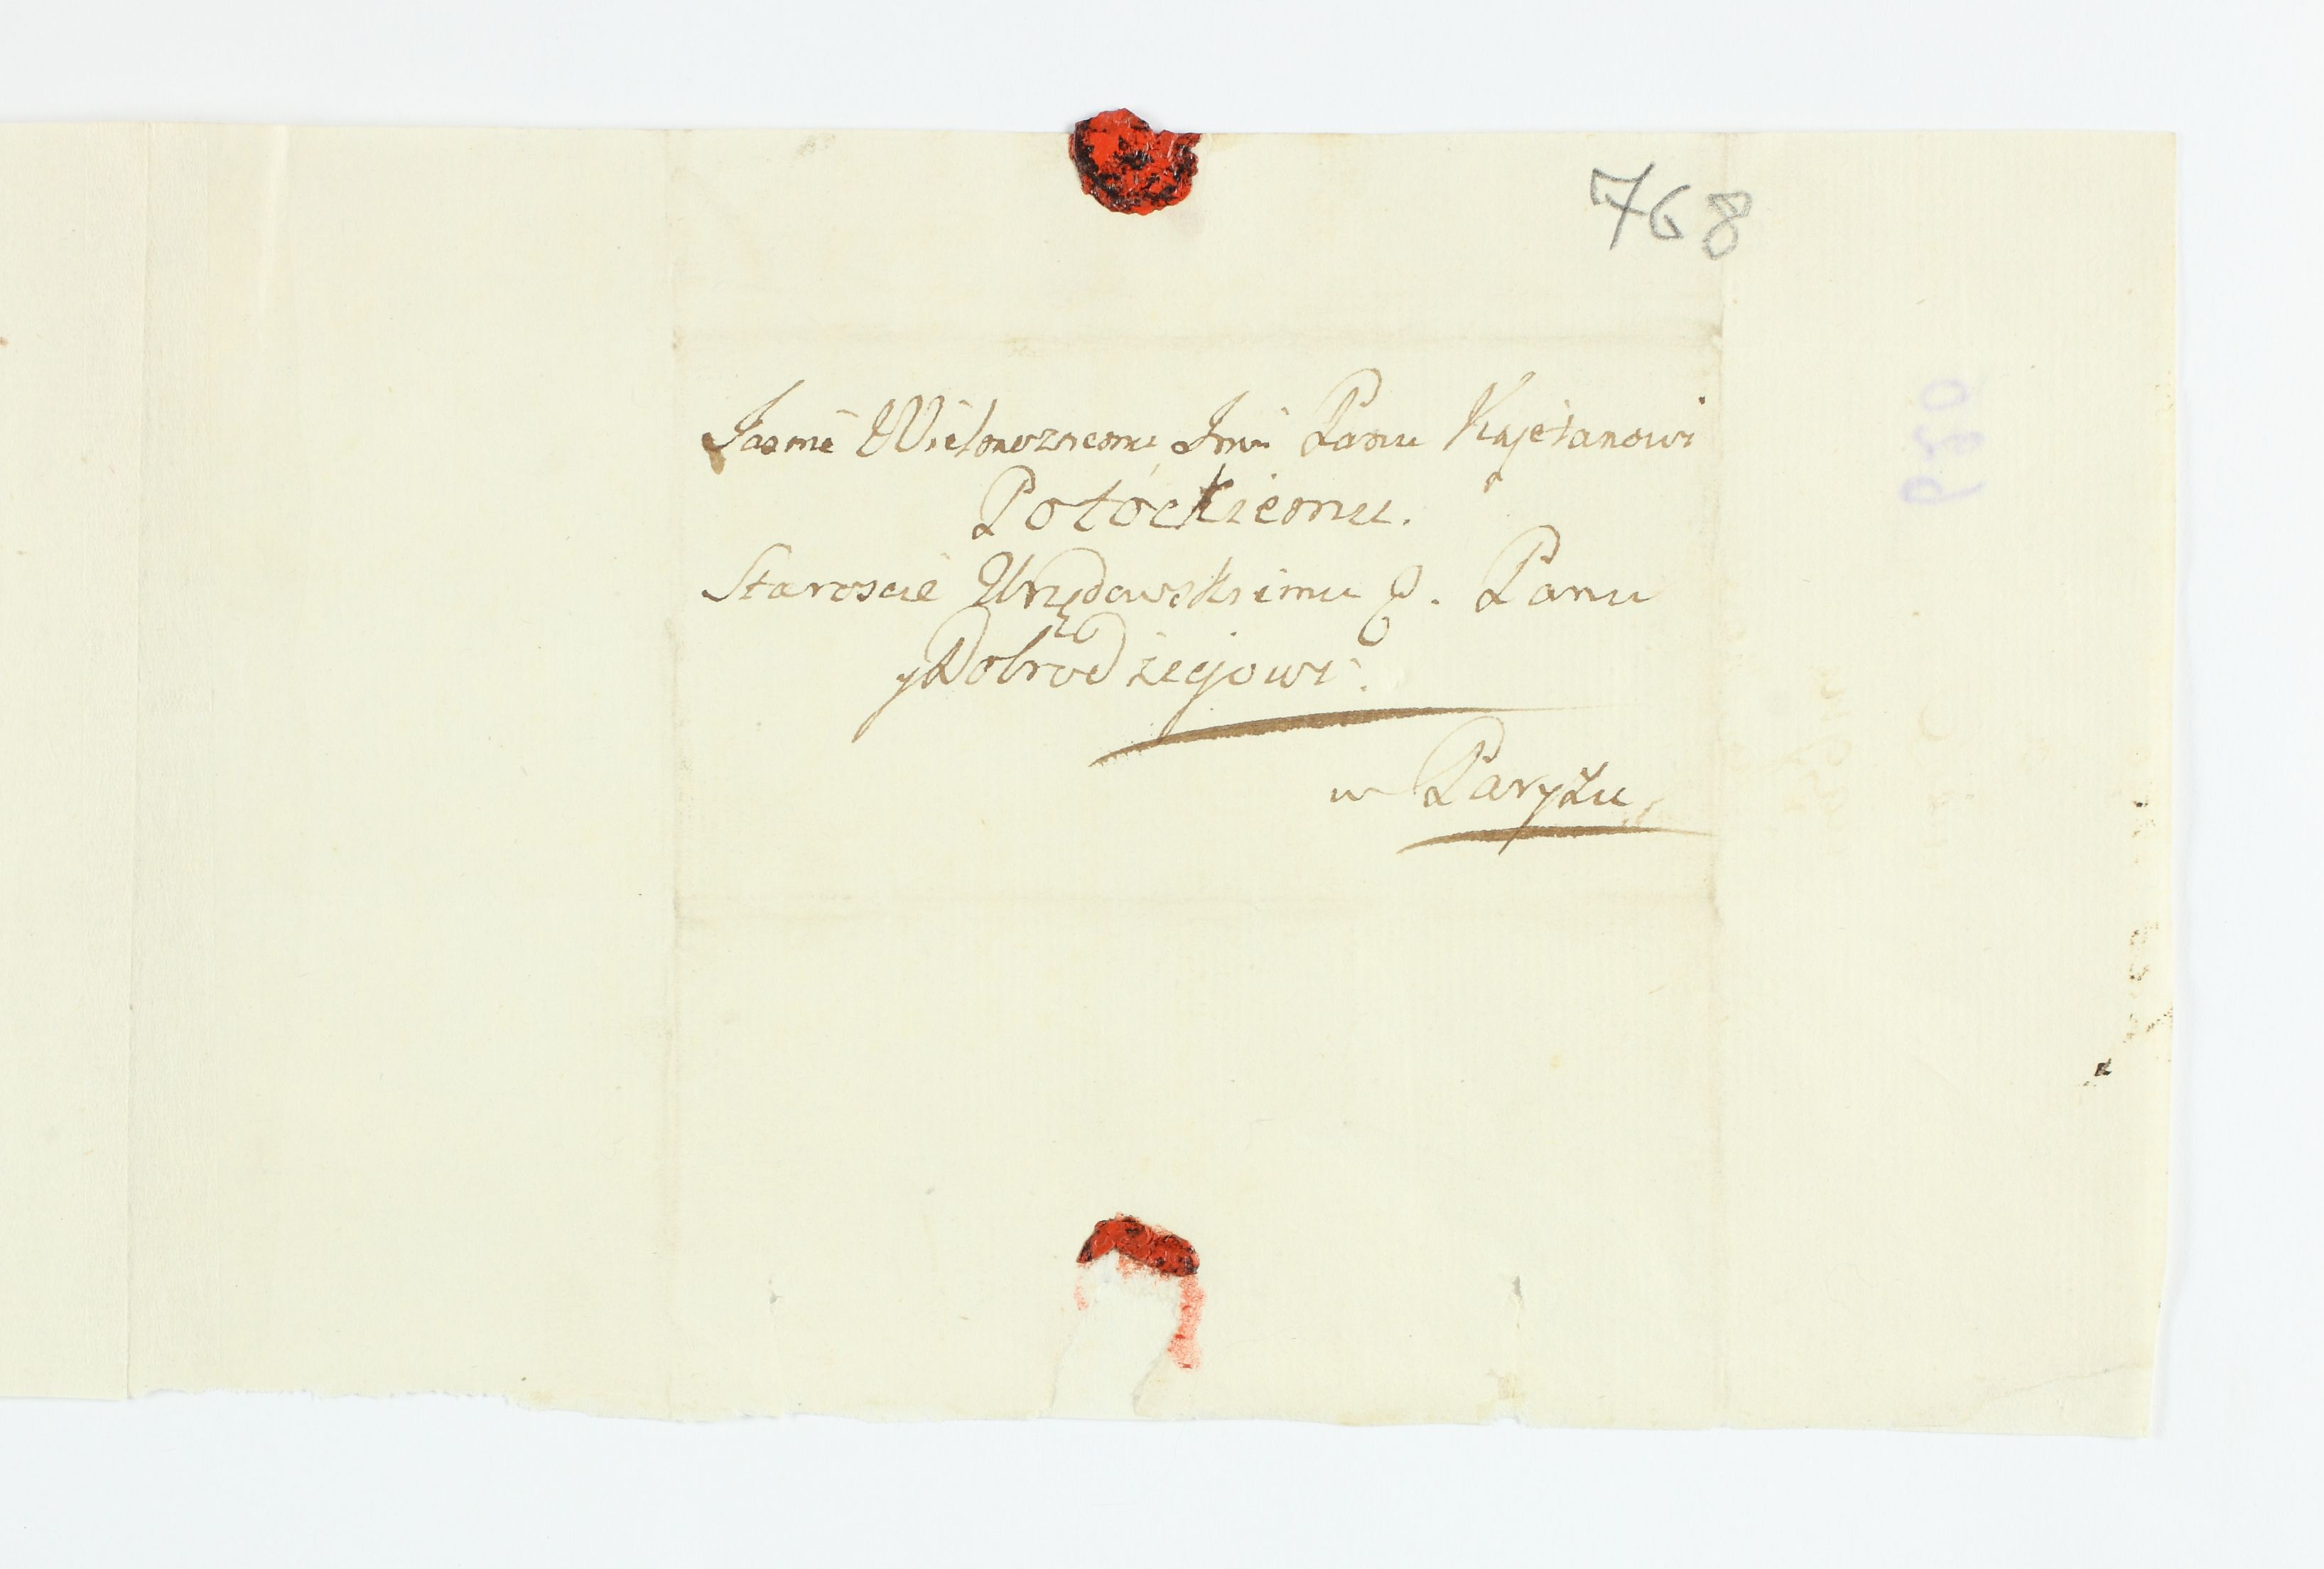 768
Jasnie Wielmoznemu Jmci Panu Kajetanowi
Potockiemu.
Staroscie Urzędowskiemu &. Panu
y Dobrodziejowi.
w Paryżu